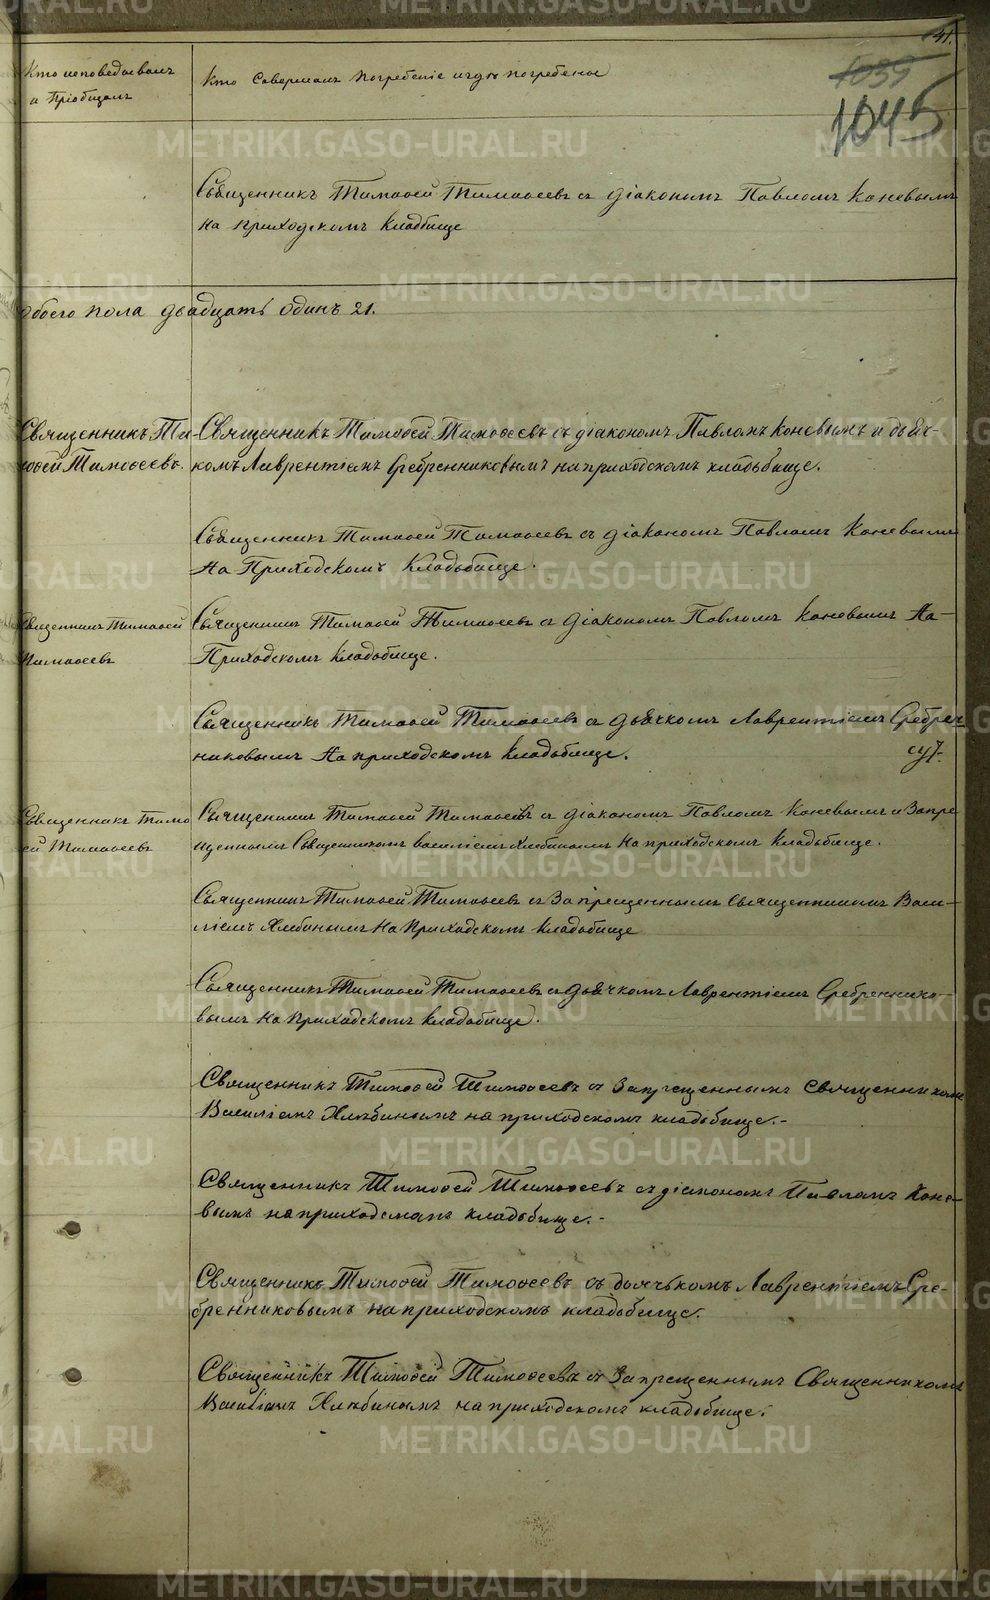 41.
1039
1045
Кто исповедывалъ
и Пріобщалъ
Кто Совершалъ погребеніе и гдѣ погребены
Священникъ Тимоѳей Тимоѳеевъ съ діакономъ Павломъ Коневымъ
на приходскомъ кладбище
обоего пола двадцать одинъ 21.
Священникъ Ти-
моѳей Тимоѳеевъ.
Священникъ Тимоѳей Тимоѳеевъ съ діакономъ Павломъ Коневымъ и дьяч-
комъ Лаврентіемъ Сребренниковымъ на приходскомъ кладьбище.
Священникъ Тимоѳей Тимоѳеевъ съ діакономъ Павломъ Коневымъ
На Приходскомъ Кладьбище.
Священникъ Тимоѳей
Тимоѳеевъ
Священникъ Тимоѳей Тимоѳеевъ съ діакономъ Павломъ Коневымъ На-
Приходскомъ Кладьбище.
Священникъ Тимоѳей Тимоѳеевъ съ дьячкомъ Лаврентіемъ Сребрен
никовымъ На приходскомъ Кладьбище.
Священникъ Тимо
ѳей Тимоѳеевъ
Священникъ Тимоѳей Тимоѳеевъ съ діакономъ Павломъ Коневымъ и Запре
щеннымъ Священникомъ Василіемъ Хлѣбинымъ На приходскомъ Кладьбище.
Священникъ Тимоѳей Тимоѳеевъ съ Запрещеннымъ Священникомъ Васи-
ліемъ Хлебинымъ На Приходскомъ Кладьбище
Священникъ Тимоѳей Тимоѳеевъ съ Дьячкомъ Лаврентіемъ Сребреннико-
вымъ На Приходскомъ Кладьбище.
Священникъ Тимоѳей Тимоѳеевъ съ Запрещеннымъ Священникомъ
Василіемъ Хлѣбинымъ на приходскомъ кладьбище.-
Священникъ Тимоѳей Тимоѳеевъ съ діакономъ Павломъ Коне-
вымъ на приходскомъ кладьбище.-
Священникъ Тимоѳей Тимоѳеевъ съ дьячькомъ Лаврентіемъ Сре-
бренниковымъ на приходскомъ кладьбище.
Священникъ Тимоѳей Тимоѳеевъ съ Запрещеннымъ Священникомъ
Василіемъ Хлѣбинымъ на приходскомъ кладьбище.
METRIKI.GASO-URAL.RU